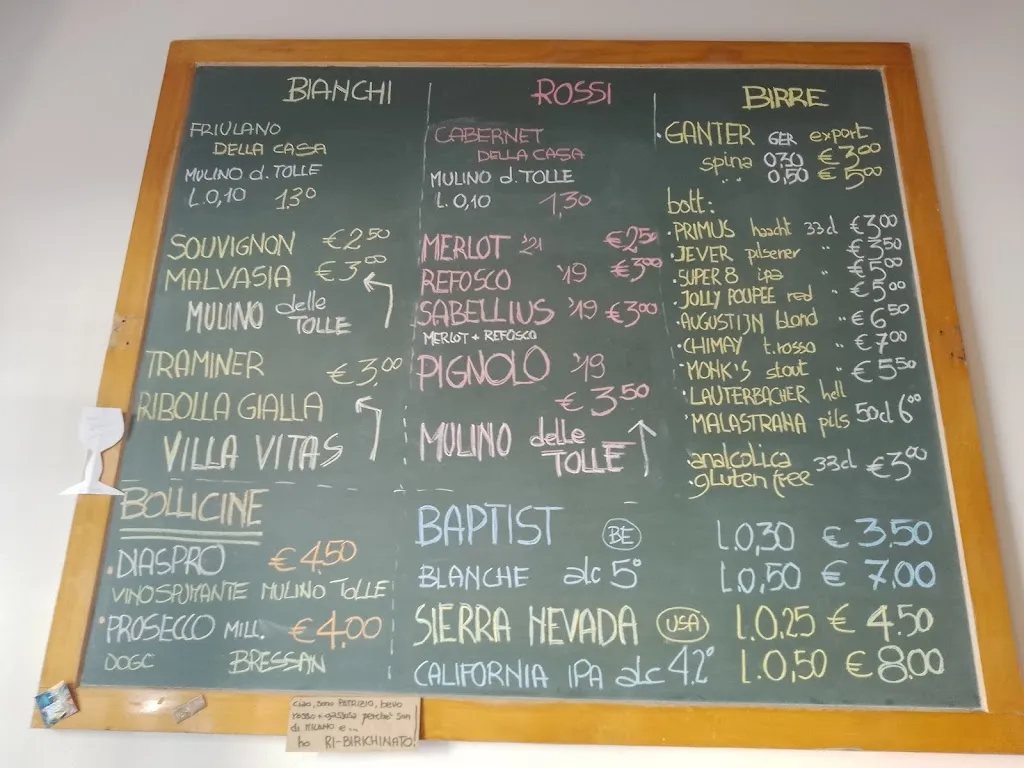 BIANCHI
FRIULANO
DELLA CASA
MULINO d. TOLLE
L.0,10 1,30
SOUVIGNON €2,50
MALVASIA €3,00
MULINO delle
TOLLE
TRAMINER €3,00
RIBOLLA GIALLA
VILLA VITAS
BOLLICINE
DIASPRO €4,50
VINO SPUMANTE MULINO TOLLE
PROSECCO MILL. €4,00
DOGC BRESSAN
ROSSI
CABERNET
DELLA CASA
MULINO d. TOLLE
L.0,10 1,30
MERLOT '21 €2,50
REFOSCO '19 €3,00
SABELLIUS '19 €3,00
MERLOT + REFOSCO
PIGNOLO '19
€3,50
MULINO delle
TOLLE
BIRRE
GANTER GER export
spina 0,30 €3,00
" " 0,50 €5,00
bott:
PRIMUS haacht 33cl €3,00
JEVER pilsener " €3,50
SUPER 8 ipa " €5,00
JOLLY POUPEE red " €5,00
AUGUSTIJN blond " €6,50
CHIMAY t.rosso " €7,00
MONK'S stout " €5,50
LAUTERBACHER hell
MALASTRANA pils 50cl 6,00
analcolica 33cl €3,00
gluten free
BAPTIST BE L.0,30 €3,50
BLANCHE alc 5° L.0,50 €7,00
SIERRA NEVADA USA L.0,25 €4.50
CALIFORNIA IPA alc 4,2° L.0,50 €8,00
ciao, sono PATRIZIO, bevo
rosso e gassosa perché son
di MILANO e...
ho RI-BIRICHINATO!